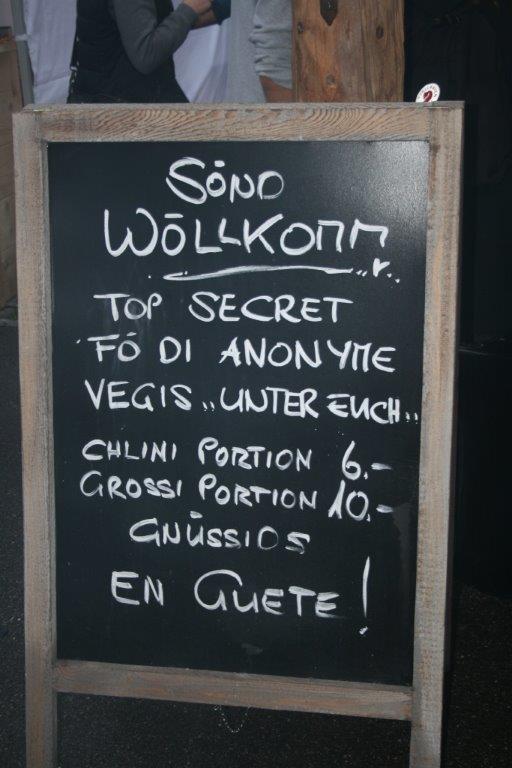 SÖND
WÖLLKOMM
TOP SECRET
FÖ DI ANONYME
VEGIS „UNTER EUCH"
CHLINI PORTION 6.-
GROSSI PORTION 10.-
GNÜSSIDS
EN GUETE!